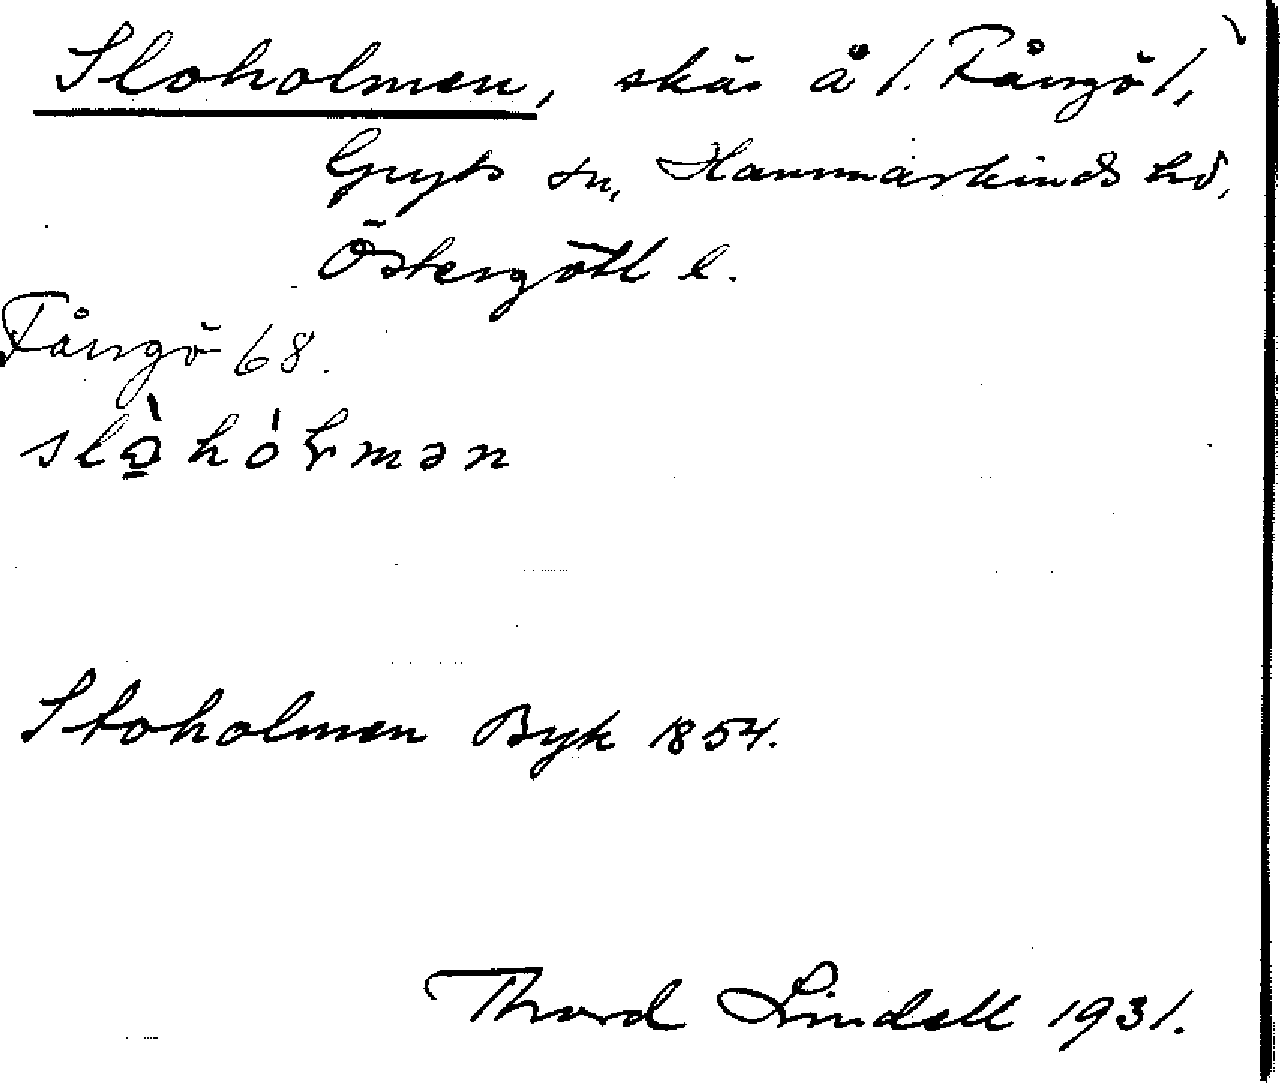 Sloholmen, skär å /. Fångö /,
Gryts sn, Hammarkinds hd,
Östergötl l.
Fångö 68.
slò̱hól̥mən
Stoholmen Byk 1854.
Thord Lindell 1931.